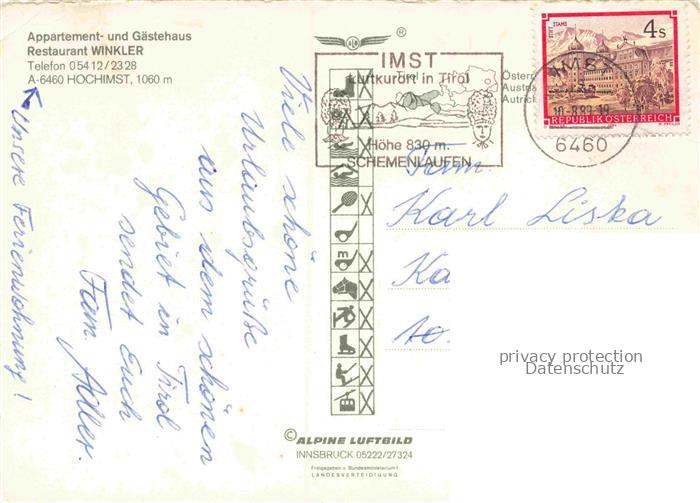 Appartement- und Gästehaus
Restaurant WINKLER
Telefon 05412/2328
A-6460 HOCHIMST, 1060 m
Unsere Ferienwohnung!
Viele schöne
Urlaubsgrüße
aus dem schönen
Gebiet in Tirol
sendet Euch
Fam. Adler.
ALB
IMST
Luftkurort in Tirol
Tirol
Höhe 830 m.
SCHEMENLAUFEN
Öster
Austria
Autric
STIFT STAMS
4s
REPUBLIK ÖSTERREICH
IMST
6460
Fam.
Karl Liska
Ka
to.
m
privacy protection
Datenschutz
© ALPINE LUFTBILD
INNSBRUCK 05222/27324
Freigegeben v. Bundesministerium f.
LANDESVERTEIDIGUNG